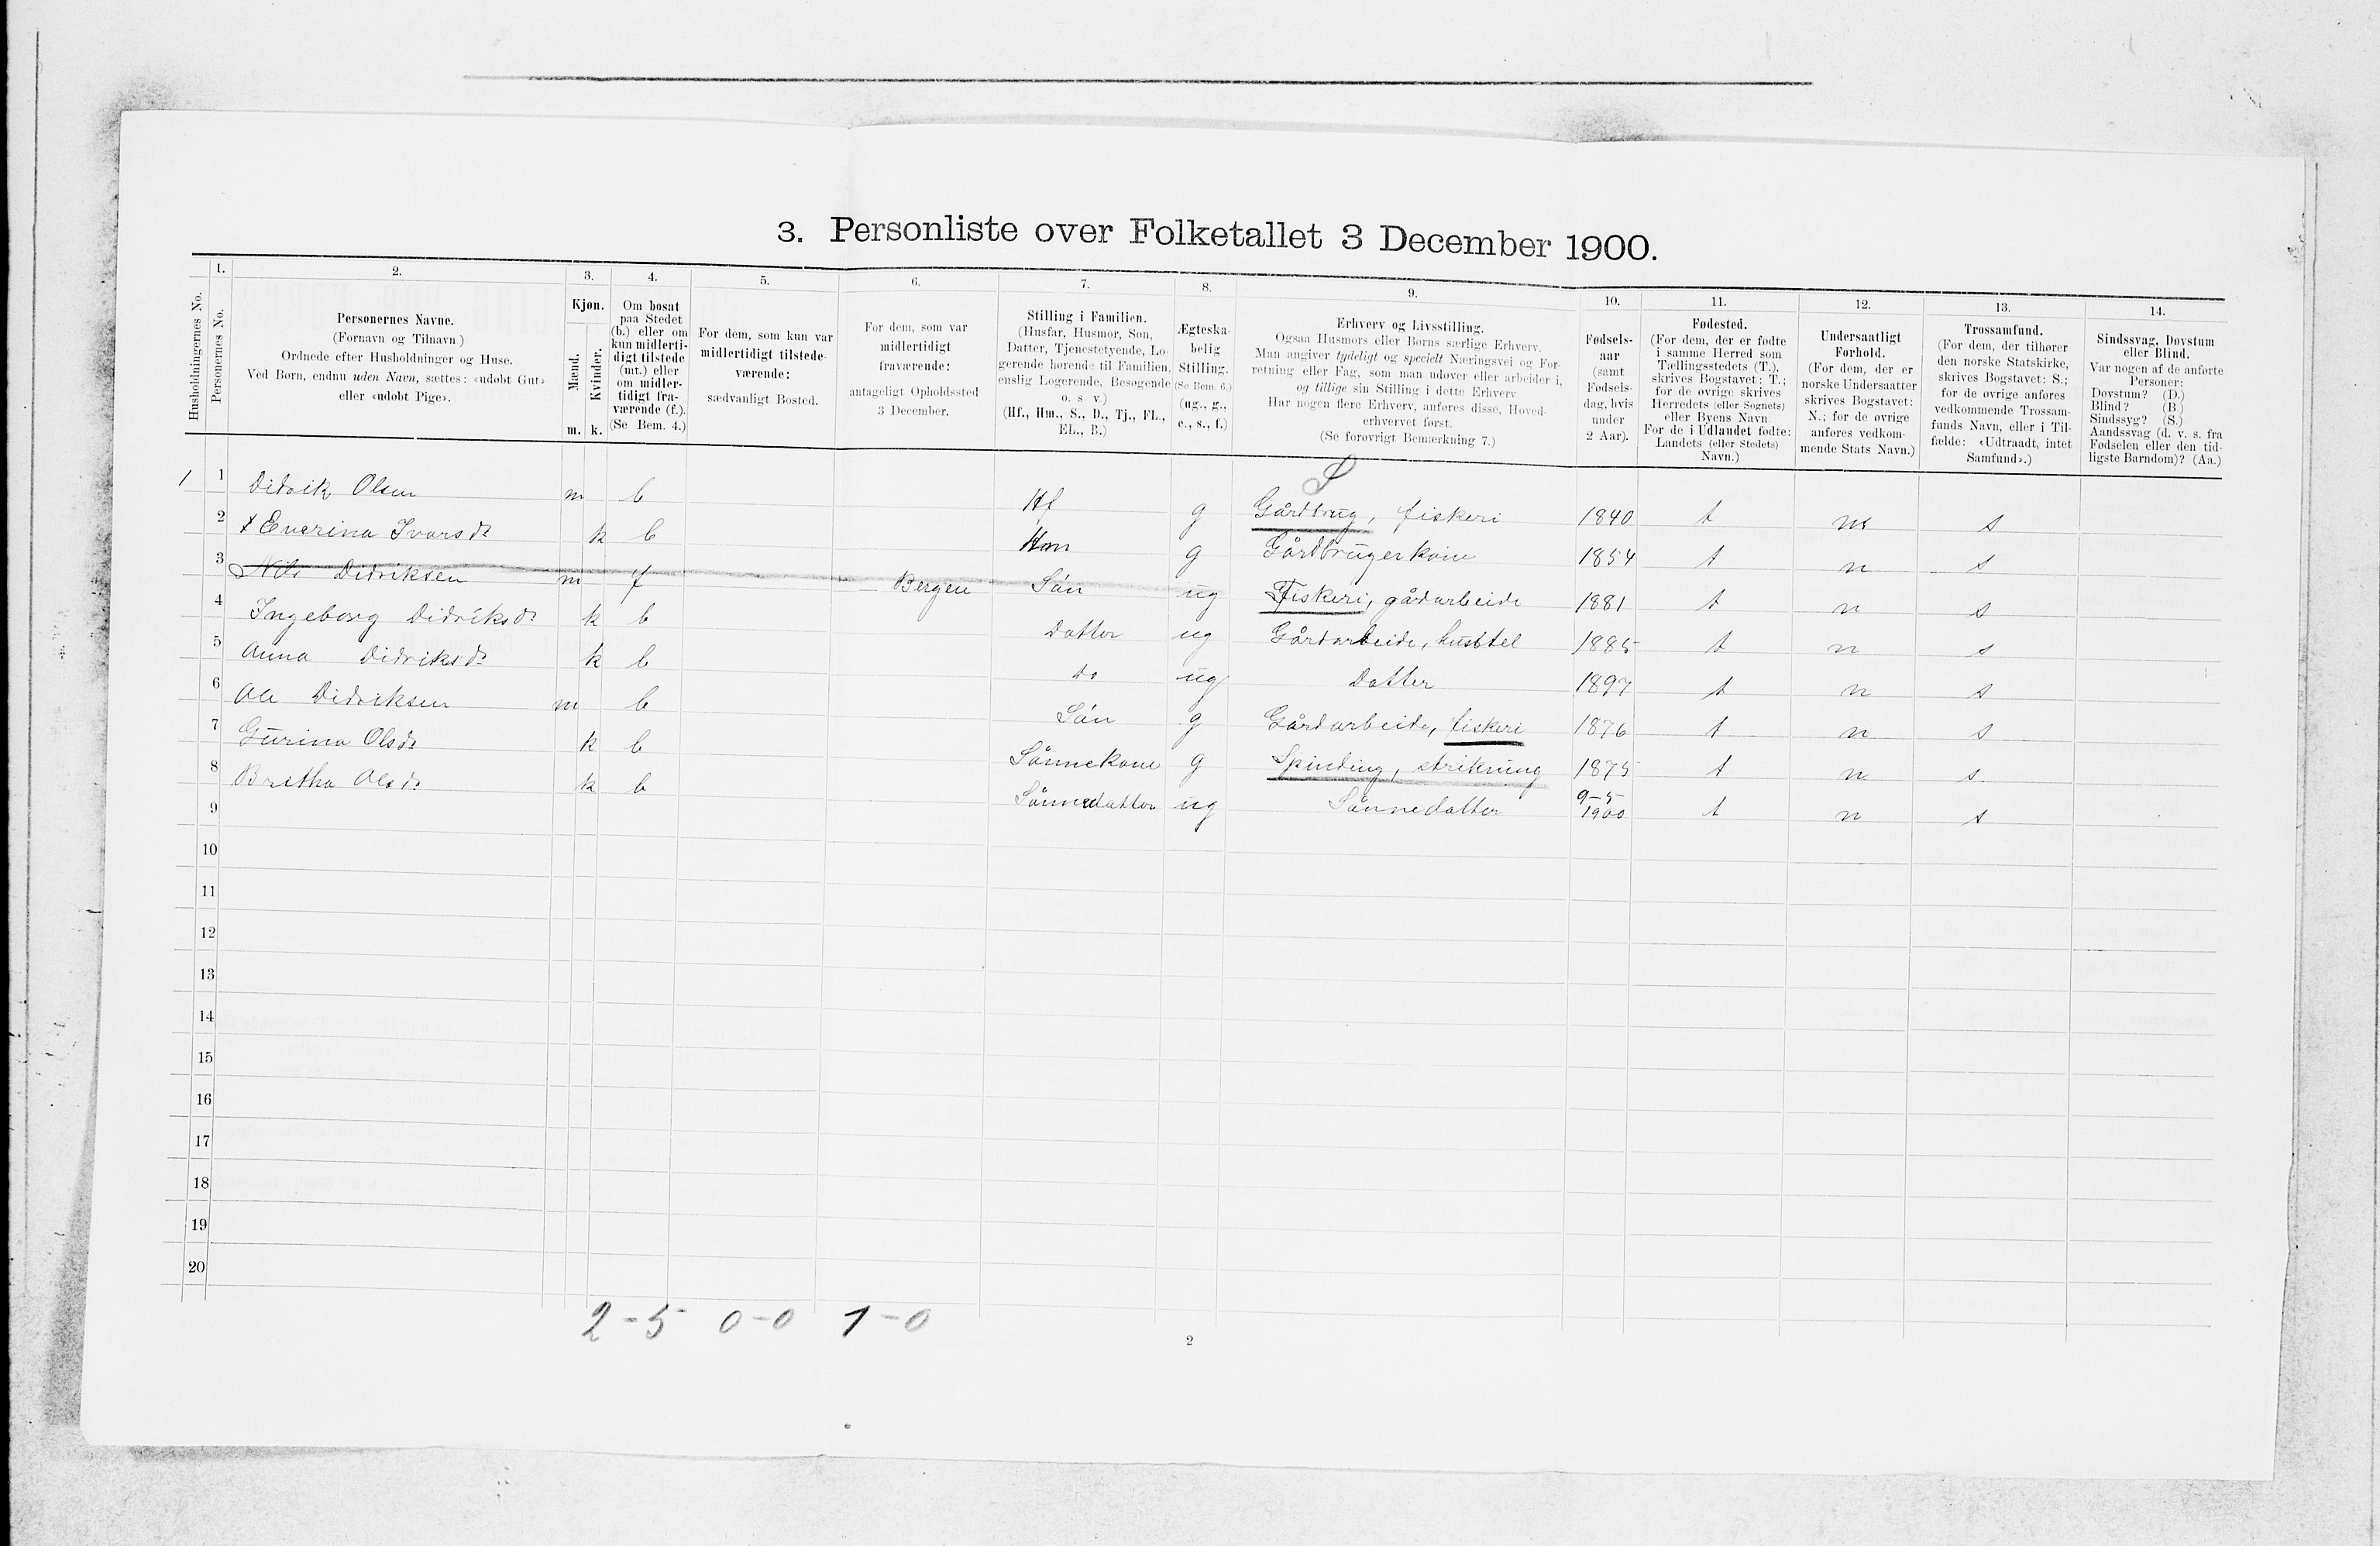 3. Personliste over Folketallet 3 December 1900.
Husholdningernes No.
1.
Personernes No.
2.
Personernes Navne.
(Fornavn og Tilnavn.)
Ordnede efter Husholdninger og Huse.
Ved Børn, endnu uden Navn, sættes: «udøbt Gut»
eller «udøbt Pige».
3.
Kjøn.
Mænd.
Kvinder.
m. k.
4.
Om bosat
paa Stedet
(b.) eller om
kun midlerti-
digt tilstede
(mt.) eller
om midler-
tidigt fra-
værende (f.).
(Se Bem. 4.)
5.
For dem, som kun var
midlertidigt tilstede-
værende:
sædvanligt Bosted.
6.
For dem, som var
midlertidigt
fraværende:
antageligt Opholdssted
3 December.
7.
Stilling i Familien.
(Husfar, Husmor, Søn,
Datter, Tjenestetyende, Lo-
gerende hørende til Familien,
enslig Logerende, Besøgende
o. s. v.)
(Hf., Hm., S., D., Tj., FL.,
EL., B.)
8.
Ægteska-
belig
Stilling.
(Se Bem. 6.)
(ug., g.,
e., s., f.)
9.
Erhverv og Livsstilling.
Ogsaa Husmors eller Børns særlige Erhverv.
Man angiver tydeligt og specielt Næringsvei og For-
retning eller Fag, som man udøver eller arbeider i,
og tillige sin Stilling i dette Erhverv
Har nogen flere Erhverv, anføres disse, Hoved-
erhvervet først.
(Se forøvrigt Bemærkning 7.)
10.
Fødsels-
aar
(samt
Fødsels-
dag, hvis
under
2 Aar).
11.
Fødested.
(For dem, der er fødte
i samme Herred som
Tællingsstedets (T.),
skrives Bogstavet: T.;
for de øvrige skrives
Herredets (eller Sognets)
eller Byens Navn
For de i Udlandet fødte:
Landets (eller Stedets)
Navn.)
12.
Undersaatligt
Forhold.
(For dem, der er
norske Undersaatter
skrives Bogstavet:
N.; for de øvrige
anføres vedkom-
mende Stats Navn.)
13.
Trossamfund.
(For dem, der tilhører
den norske Statskirke,
skrives Bogstavet: S.;
for de øvrige anføres
vedkommende Trossam-
funds Navn, eller i Til-
fælde: «Udtraadt, intet
Samfund».)
14.
Sindssvag, Døvstum
eller Blind.
Var nogen af de anførte
Personer:
Døvstum? (D.)
Blind? (B.)
Sindssyg? (S.)
Aandssvag (d. v. s. fra
Fødselen eller den tid-
ligste Barndom)? (Aa.)
S
1 1 Didrik Olsen m b Hf g Gårdbrug, fiskeri 1840 t n s
2 x Enerina Ivarsdr k b Hm g Gårdbrugerkone 1854 t n s
3 Nils Didriksen m f Bergen Sön ug Fiskeri, gårdarbeide 1881 t n s
4 Ingeborg Didriksdr k b Datter ug Gårdarbeide, husstel 1885 t n s
5 Anna Didriksdr k b do ug Datter 1897 t n s
6 Ole Didriksen m b Sön g Gårdarbeide, fiskeri 1876 t n s
7 Gurina Olsdr k b Sönnekone g Spinding, strikning 1875 t n s
8 Bretha Olsdr k b Sönnedatter ug Sönnedatter 9-5 1900 t n s
9
10
11
12
13
14
15
16
17
18
19
20
2-5 0-0 1-0
2